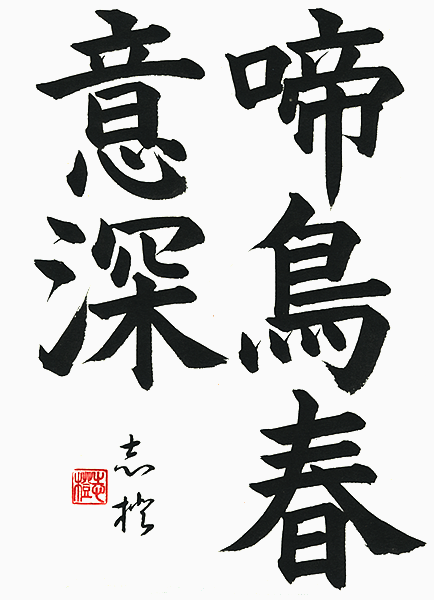 啼鳥春
意深
志橙